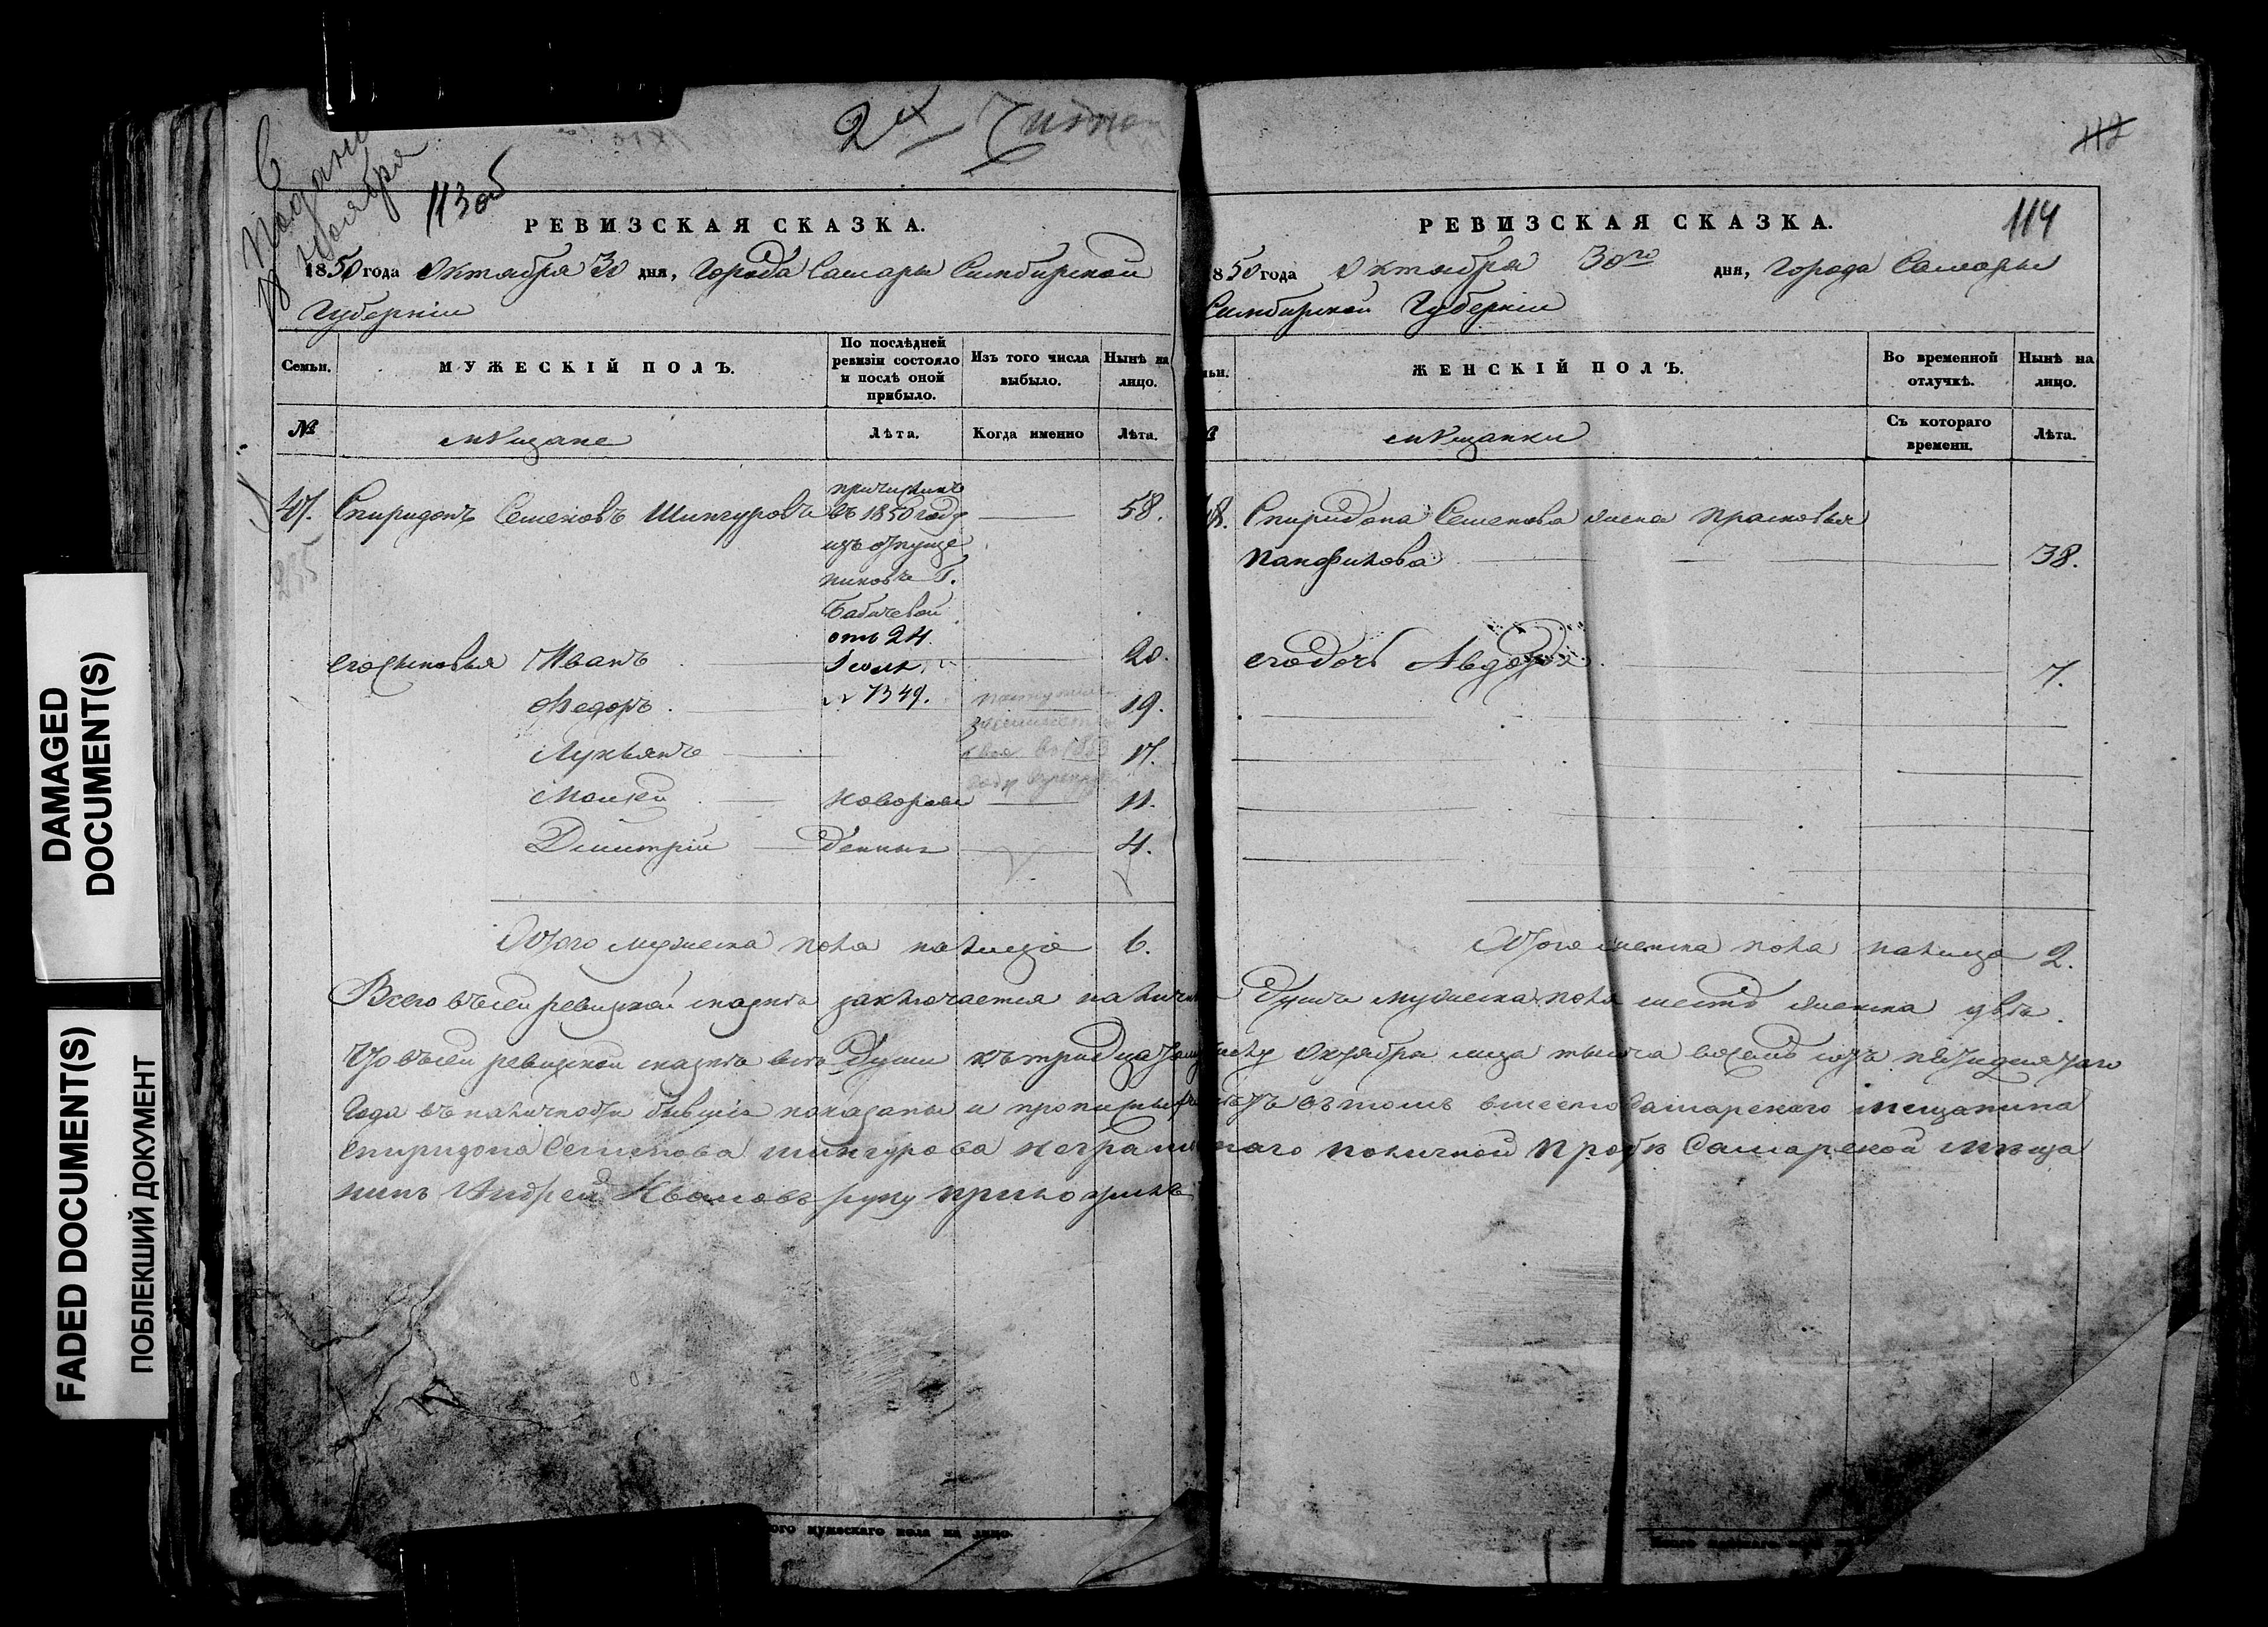 DAMAGED
DOCUMENT(S)
FADED DOCUMENT(S)
ПОБЛЕКШИЙ ДОКУМЕНТ
Ноября
113 об
РЕВИЗСКАЯ СКАЗКА.
1850 года Октября 30 дня, Города Самары Симбирской
Губерніи
Семьи.
МУЖЕСКІЙ ПОЛЪ.
По послѣдней
ревизіи состояло
и послѣ оной
прибыло.
Изъ того числа
выбыло.
Нынѣ на
лицо.
№
мѣщане
Лѣта.
Когда именно
Лѣта.
47. Спиридонъ Семеновъ Шингуровъ 58.
причисленъ
въ 1850 году
изъ отпуще
никовъ Г.
Бабичевой
отъ 24
№ 7349.
его сыновья Иванъ 20.
Федоръ 19.
Лукьянъ 17.
Моисей новорож 11.
Дмитрій денныя 4.
Итого мужеска пола налицо 6.
112
114
РЕВИЗСКАЯ СКАЗКА.
850 года Октября 30го дня, Города Самары
Симбирской Губерніи
ЖЕНСКІЙ ПОЛЪ.
Во временной
отлучкѣ.
Нынѣ на
лицо.
мѣщанки
Съ котораго
времени.
Лѣта.
Спиридона Семенова жена Прасковья
Панфилова 38.
его дочь 7.
Итого женска пола налицо 2.
Всего въ сей ревизской сказкѣ заключается налично душъ мужеска пола шесть женска двѣ.
Что въ сей ревизской сказкѣ всѣ души къ тридцатому числу Октября мца тысяча восемь сотъ пятидесятаго
Года въ наличности бывшіе показаны и прописныхъ нетъ въ томъ вместо Самарскаго мещанина
Спиридона Семенова Шингурова неграмотнаго по личной прозбѣ Самарской мѣща
нинъ Андрей руку приложилъ
ого мужескаго пола на лицо.